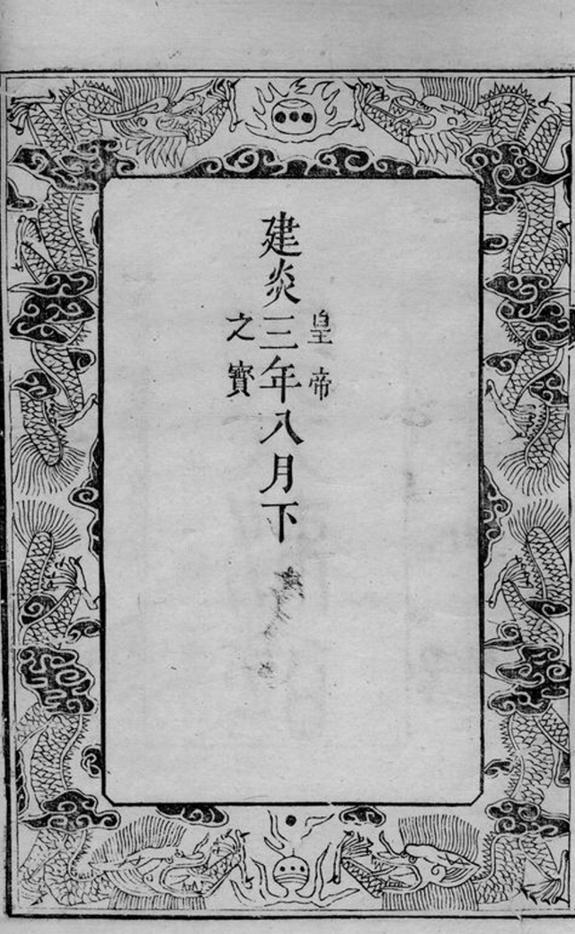 皇帝
建炎三年八月下
之寶